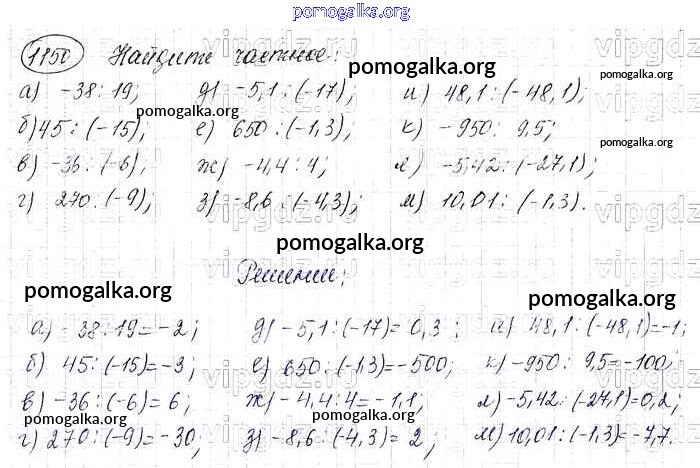 pomogalka.org
1150 Найдите частное:
pomogalka.org
pomogalka.org
а) -38 : 19; д) -5,1 : (-17); и) 48,1 : (-48,1);
pomogalka.org
б) 45 : (-15); е) 650 : (-1,3); к) -950 : 9,5;
pomogalka.org
в) -36 : (-6); ж) -4,4 : 4; л) -5,42 : (-27,1);
г) 270 : (-9); з) -8,6 : (-4,3); м) 10,01 : (-1,3).
pomogalka.org
Решение:
pomogalka.org
pomogalka.org
а) -38 : 19 = -2; д) -5,1 : (-17) = 0,3; и) 48,1 : (-48,1) = -1;
б) 45 : (-15) = -3; е) 650 : (-1,3) = -500; к) -950 : 9,5 = -100;
в) -36 : (-6) = 6; ж) -4,4 : 4 = -1,1; л) -5,42 : (-27,1) = 0,2;
pomogalka.org
pomogalka.org
pomogalka.org
г) 270 : (-9) = -30; з) -8,6 : (-4,3) = 2; м) 10,01 : (-1,3) = -7,7.